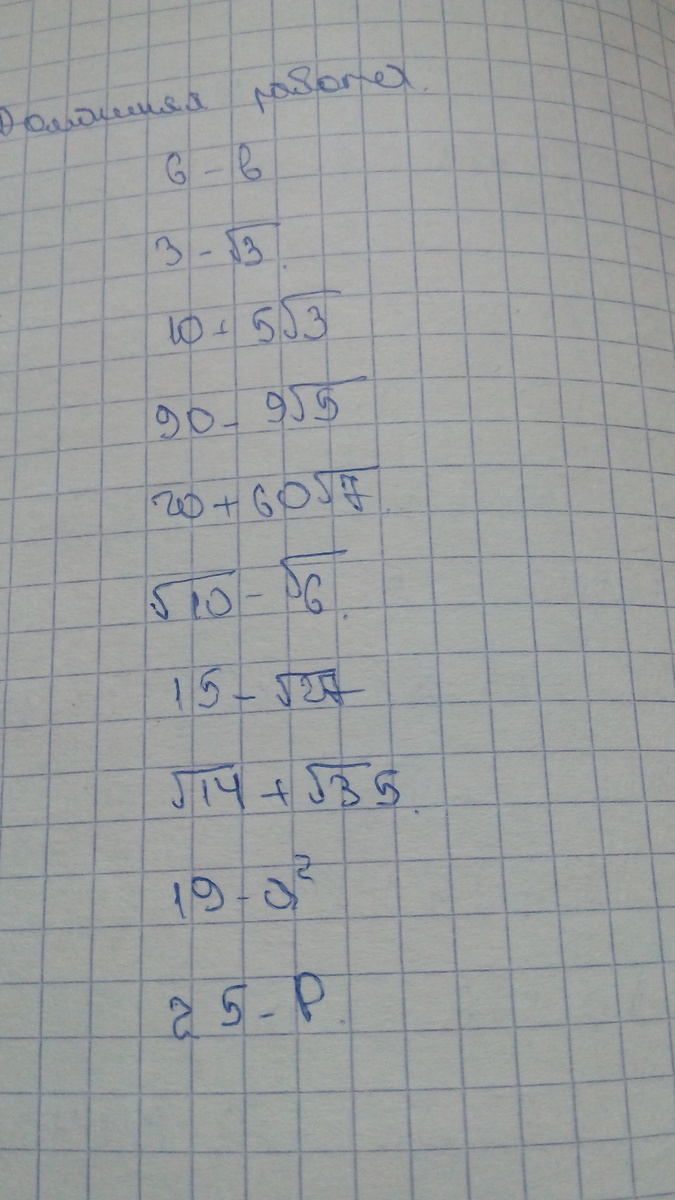 Домашняя работа.
6 - в
3 - √3.
10 + 5√3
90 - 9√5
20 + 60√7.
√10 - √6.
15 - √27
√14 + √35.
19 - а²
25 - p.